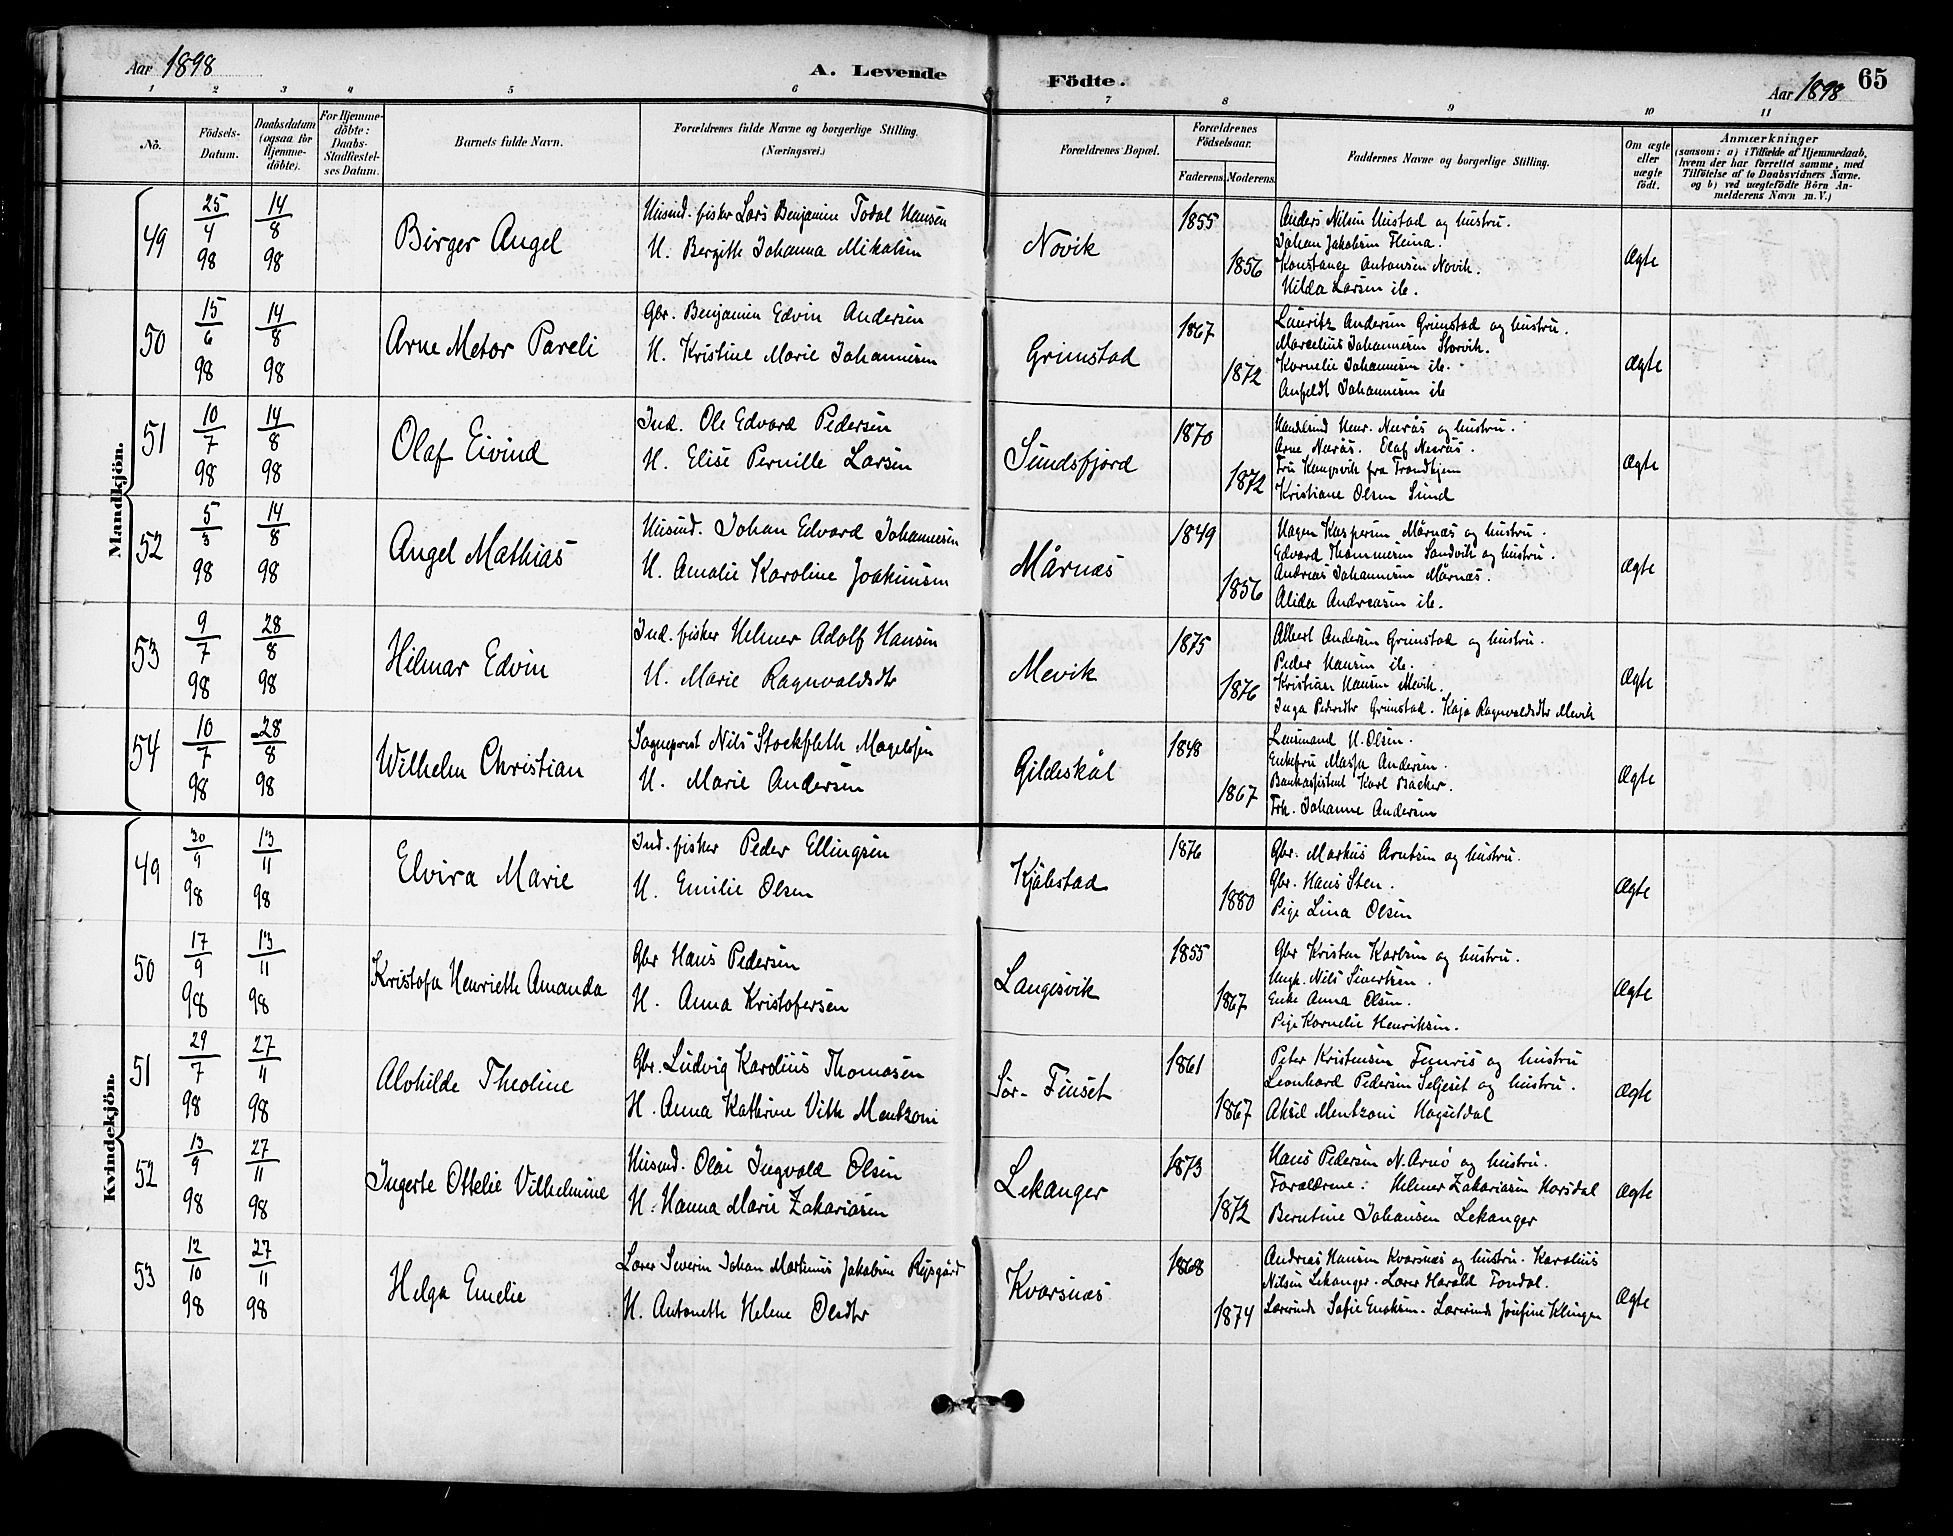 Aar 1898
A. Levende Födte.
Aar 1898
65
1 2 3 4 5 6 7 8 9 10 11
No.
Födsels-Datum.
Daabsdatum (ogsaa för Hjemmedöbte).
For Hjemmedöbte: Daabs-Stadfæstelses Datum.
Barnets fulde Navn.
Forældrenes fulde Navne og borgerlige Stilling. (Næringsvei.)
Forældrenes Bopæl.
Forældrenes Födselsaar.
Faderens. Moderens.
Faddernes Navne og borgerlige Stilling.
Om ægte eller uægte födt.
Anmærkninger
(saasom: a) i Tilfælde af Hjemmedaab, hvem der har forrettet samme, med Tilföielse af to Daabsvidners Navne. og b) ved uægtefödte Börn Anmelderens Navn m.V.)
Mandkjön.
49
25/4 98
14/8 98
Birger Angel
Husmd. fisker Lars Benjamin Todal Hansen
H. Bergithe Johanna Mikalsen
Novik
1855
1856
Anders Nilsen Hustad og hustru.
Johan Jakobsen Fleina.
Konstance Antonsen Novik.
Hilda Larsen ib.
Ægte
50
15/6 98
14/8 98
Arne Metor Pareli
Gbr. Benjamin Edvin Andersen
H. Kristine Marie Johannesen
Grimstad
1867
1872
Lauritz Andersen Grimstad og hustru.
Marselius Johannesen Storvik.
Kornelie Johannesen ib.
Anfeldt Johannesen ib
Ægte
51
10/7 98
14/8 98
Olaf Eivind
Ind. Ole Edvard Pedersen
H. Elise Pernille Larsen
Sundsfjord
1870
1872
Arne Neerås. Olaf Neerås.
Fru Kangsvik fra Trondhjem
Kristiane Olsen Sund
Ægte
52
5/3 98
14/8 98
Angel Mathias
Husmd. Johan Edvard Johannesen
H. Amalie Karoline Joakimsen
Mårnæs
1849
1856
Hagen Kaspersen Mårnæs og hustru.
Edvard Thommesen Sandvik og hustru.
Andreas Johannesen Mårnæs.
Alida Andreasen ib.
Ægte
53
9/7 98
28/8 98
Hilmar Edvin
Ind. fisker Helmer Adolf Hansen
H. Marie Ragnvaldsdtr
Mevik
1875
1876
Albert Andersen Grimstad og hustru.
Peder Hansen ib.
Kristian Hansen Mevik.
Inga Pedersdtr Grimstad. Kaja Ragnvaldsdtr Mevik
Ægte
54
10/7 98
28/8 98
Wilhelm Christian
Sogneprest Nils Stockfleth Magelssen
H. Marie Andersen
Gildeskål
1848
1867
Lensmand H. Olsen.
Enkefru Andersen.
Bankassistent Karl Backer.
Frk. Johanne Andersen
Ægte
Kvindekjön.
49
30/9 98
13/11 98
Elvira Marie
Ind. fisker Peder Ellingsen
H. Emilie Olsen
Kjölstad
1876
1880
Gbr. Markus Arntsen og hustru.
Gbr. Hans Sten.
Pige Lina Olsen
Ægte
50
17/9 98
13/11 98
Kristofa Henriette Amanda
Gbr Hans Pedersen
H. Anna Kristofersen
Langesvik
1855
1867
Gbr Kristen Karlsen og hustru.
Ungk. Nils Sivertsen.
Enke Anna Olsen.
Pige Kornelie Henriksen.
Ægte
51
29/7 98
27/11 98
Alvhilde Theoline
Gbr. Ludvig Karolius Thomasen
H. Anna Kathrine Vith Mentzoni
Sör-Finset
1861
1867
Peter Kristensen Finnvis og hustru
Leonhard Pedersen Seljeset og hustru.
Aksel Mentzoni Hagseldal
Ægte
52
13/9 98
27/11 98
Ingerte Ottelie Vilhelmine
Husmd. Olai Ingvald Olsen
H. Hanna Marie Zakariasen
Lekanger
1873
1872
Hans Pedersen N. Arnö og hustru.
Forældrene: Helmer Zakariasen Horsdal
Berntine Johansen Lekanger
Ægte
53
12/10 98
27/11 98
Helga Emelie
Lærer Severin Johan Martinus Jakobsen Rysgård
H. Antonette Helene Olsdtr
Kvarsnæs
1868
1874
Andreas Hansen Kvarsnæs og hustru. Karolius
Nilsen Lekanger. Lærer Harald Tondal.
Lærerinde Sofie Enoksen. Lærerinde Josefine Klingen
Ægte